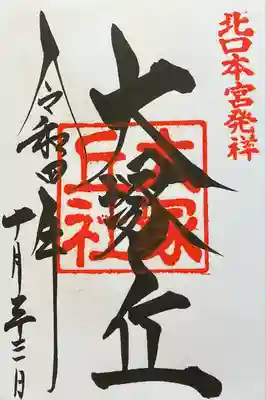 北口本宮発祥
大塚丘
大塚
丘社
令和四年
十月二十三日